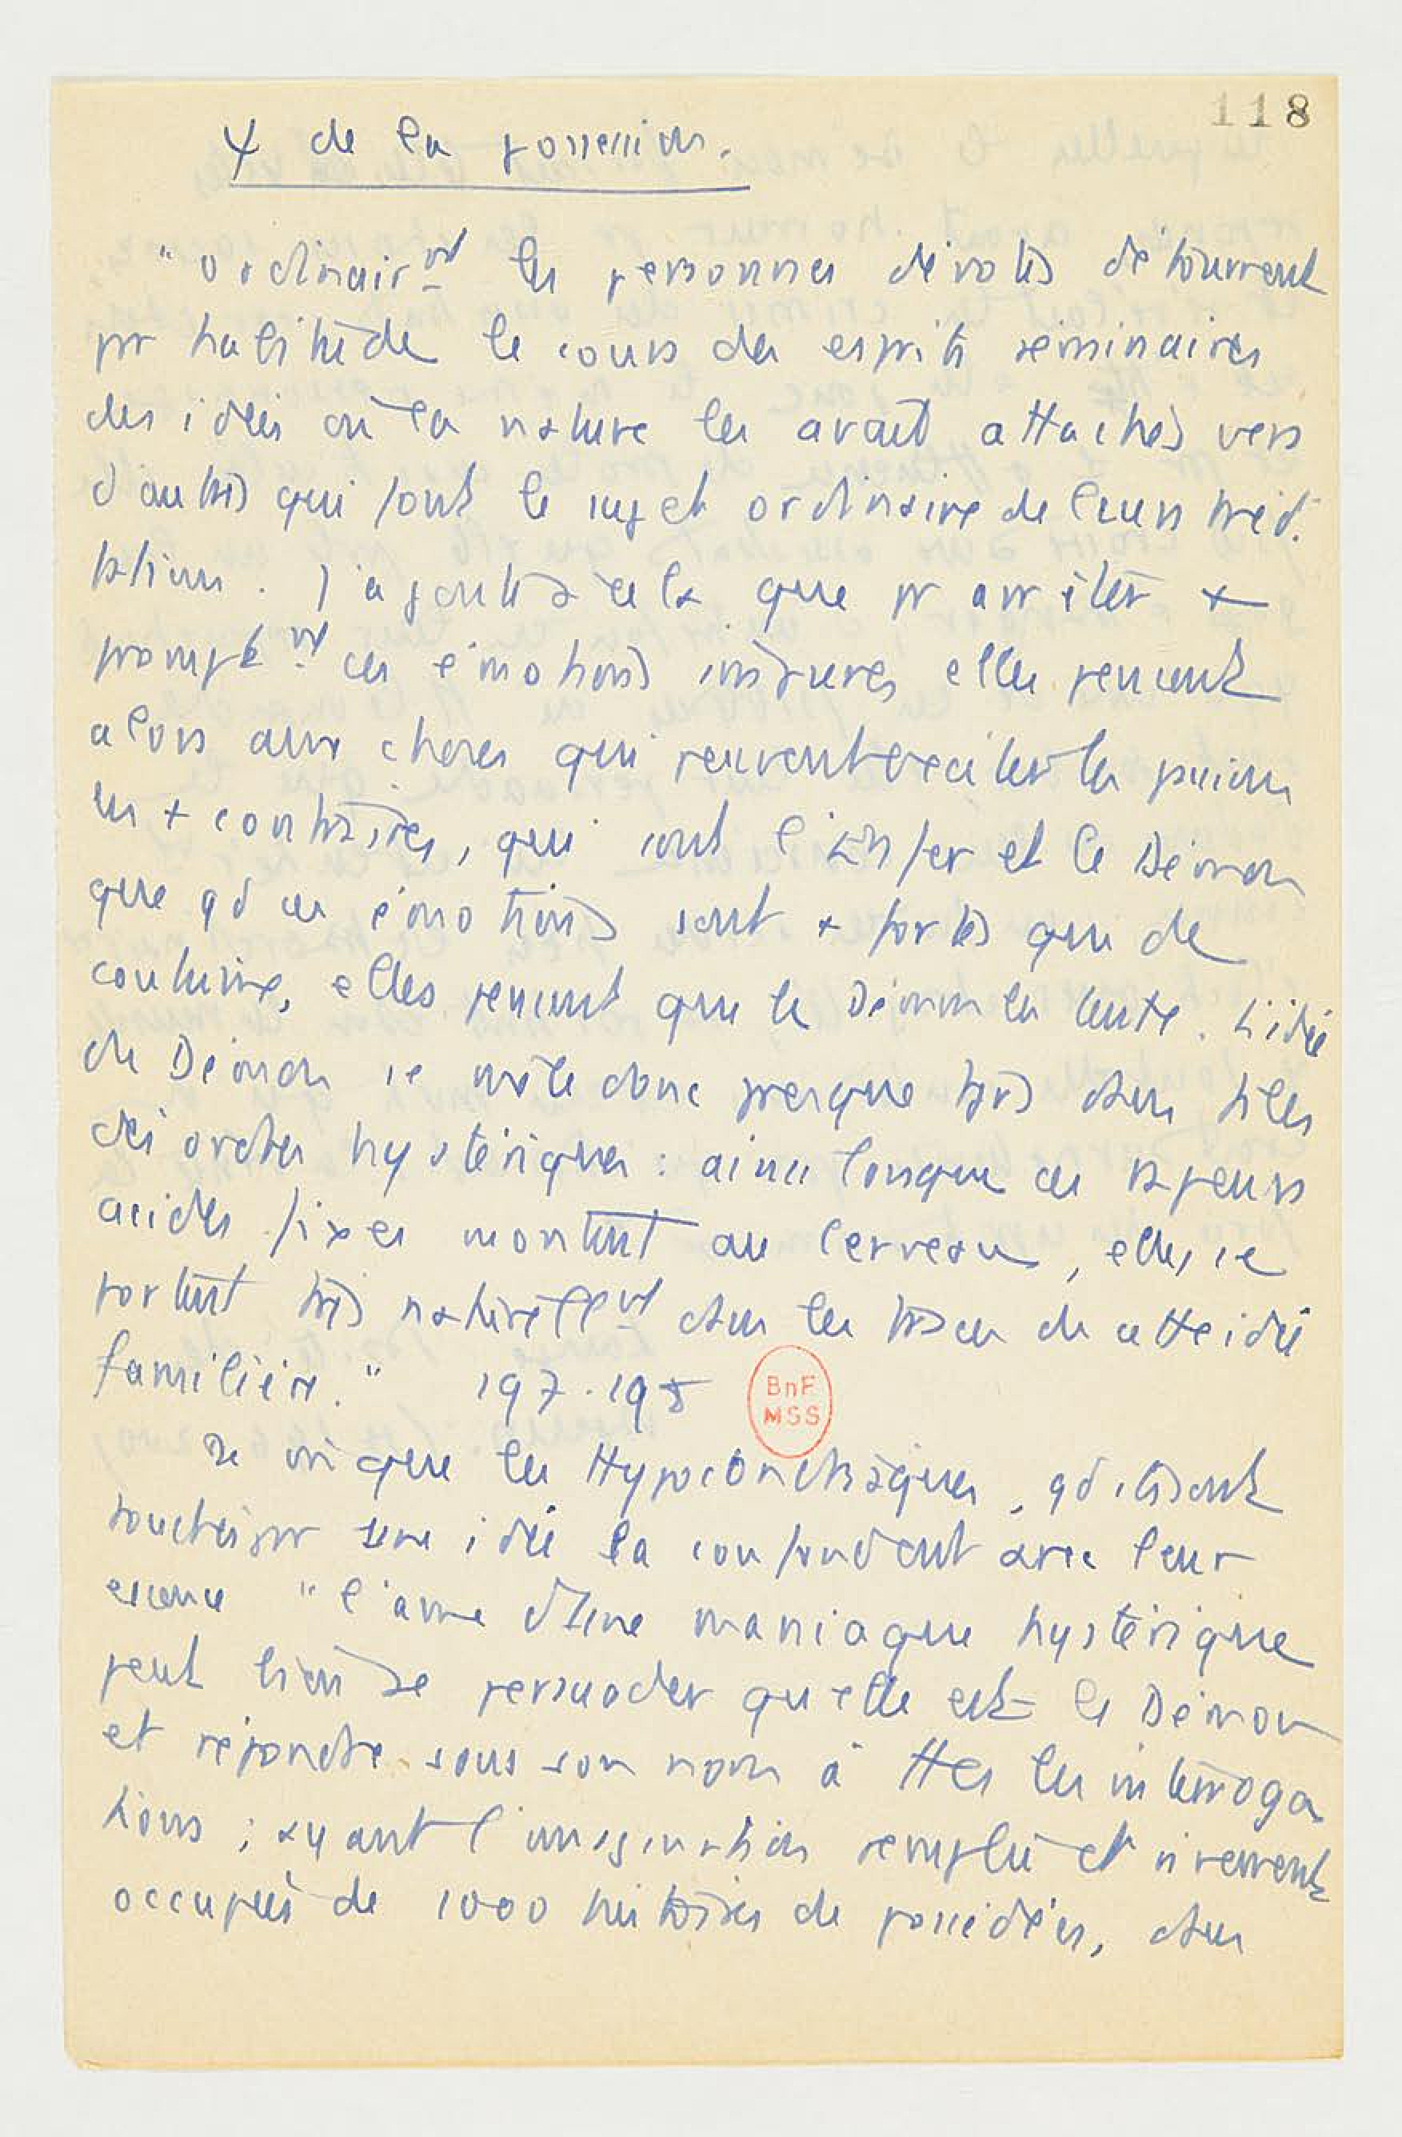 118
ψ de la possession.
"ordinairmt les personnes dévotes détournent
pr habitude le cours des esprits séminaires
des idées où la nature les avait attachés vers
d'autres qui font le sujet ordinaire de leurs méd.
tations. J'ajoute à cela que pr arrêter +
promptmt ces émotions impures elles pensent
alors aux choses qui peuvent exciter les passions
les + contraires, qui sont l'Enfer et le Démon
que qd ces émotions sont + fortes que de
coutume, elles pensent que le Démon les tente. L'idée
du Démon se mêle donc presque très dans telles
désordres hystériques : ainsi lorsque ces vapeurs
acides fixes montent au cerveau, elles se
portent très naturellmt dans les traces de cette idée
familière." 197-198
BnF
MSS
De m que les Hypocondriaques, qd ils sont
touchés pr une idée la confondent avec leur
essence "l'ame d'une maniaque hystérique
peut bien se persuader qu'elle est le Démon
et répondre sous son nom à ttes les interroga
tions ; ayant l'imagination remplie et vivement
occupée de 1000 histoires de possédées, dans